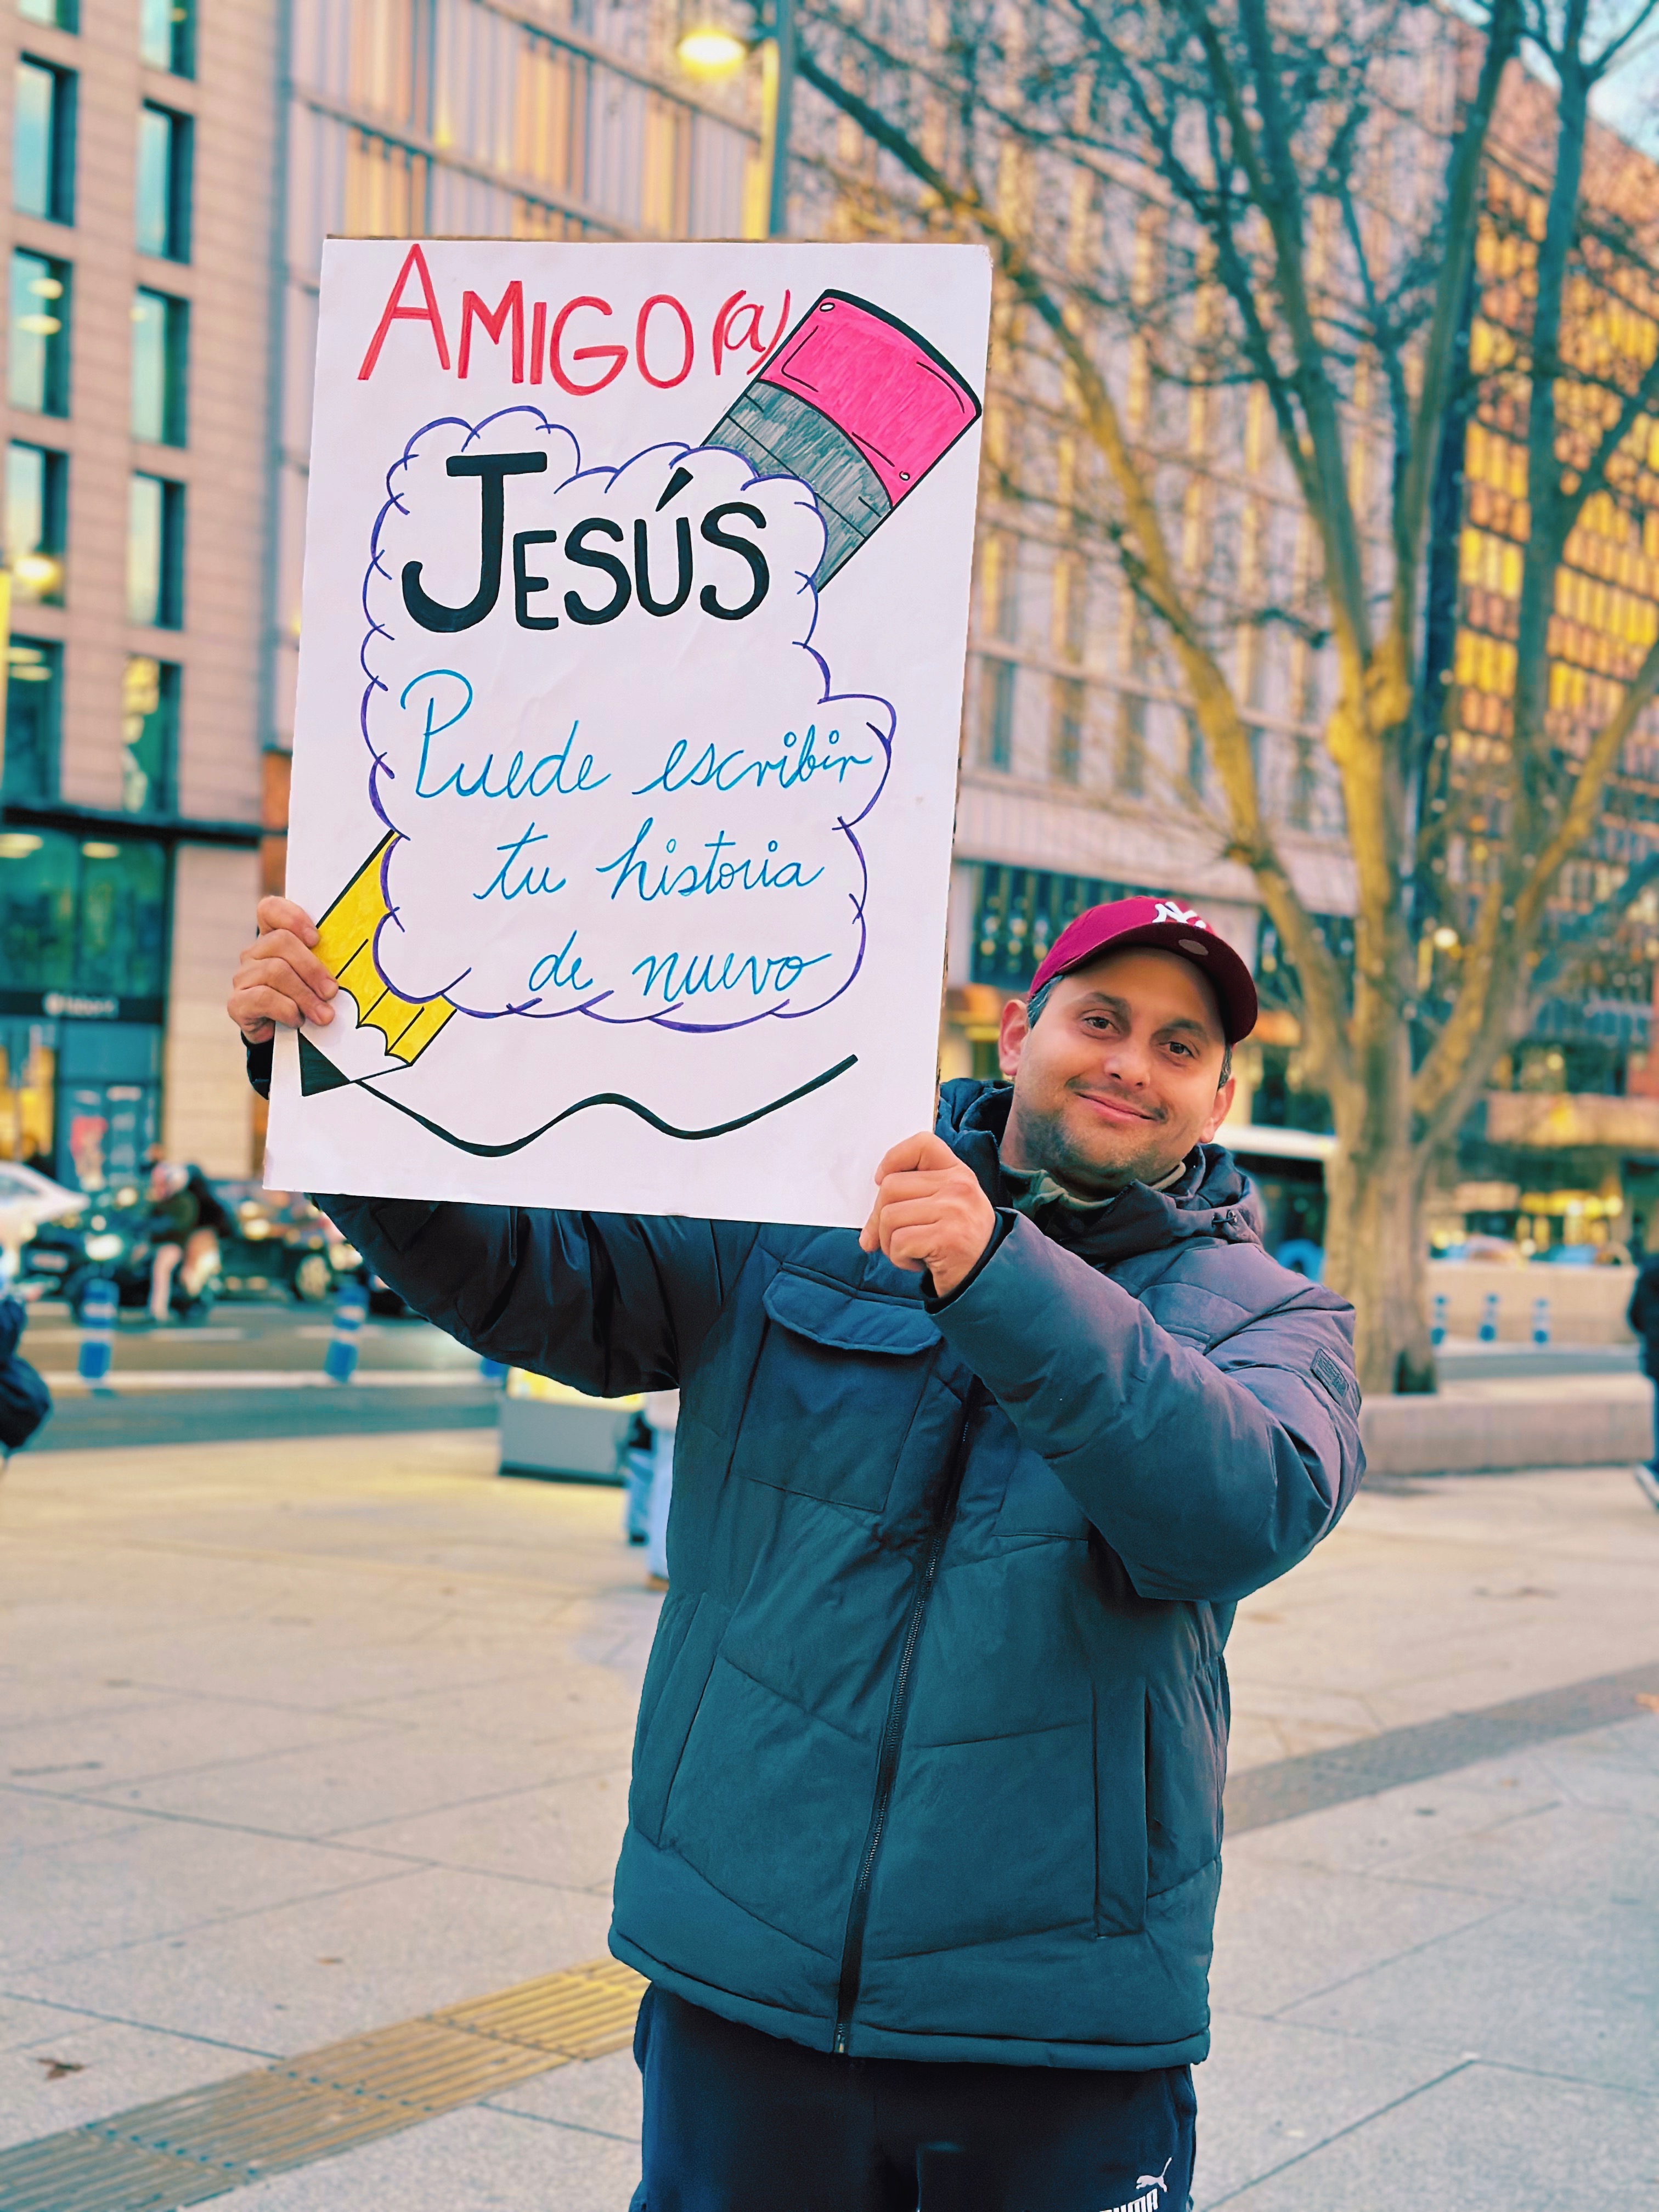 AMIGO(a)
JESÚS
Puede escribir
tu historia
de nuevo
NY
PUMA